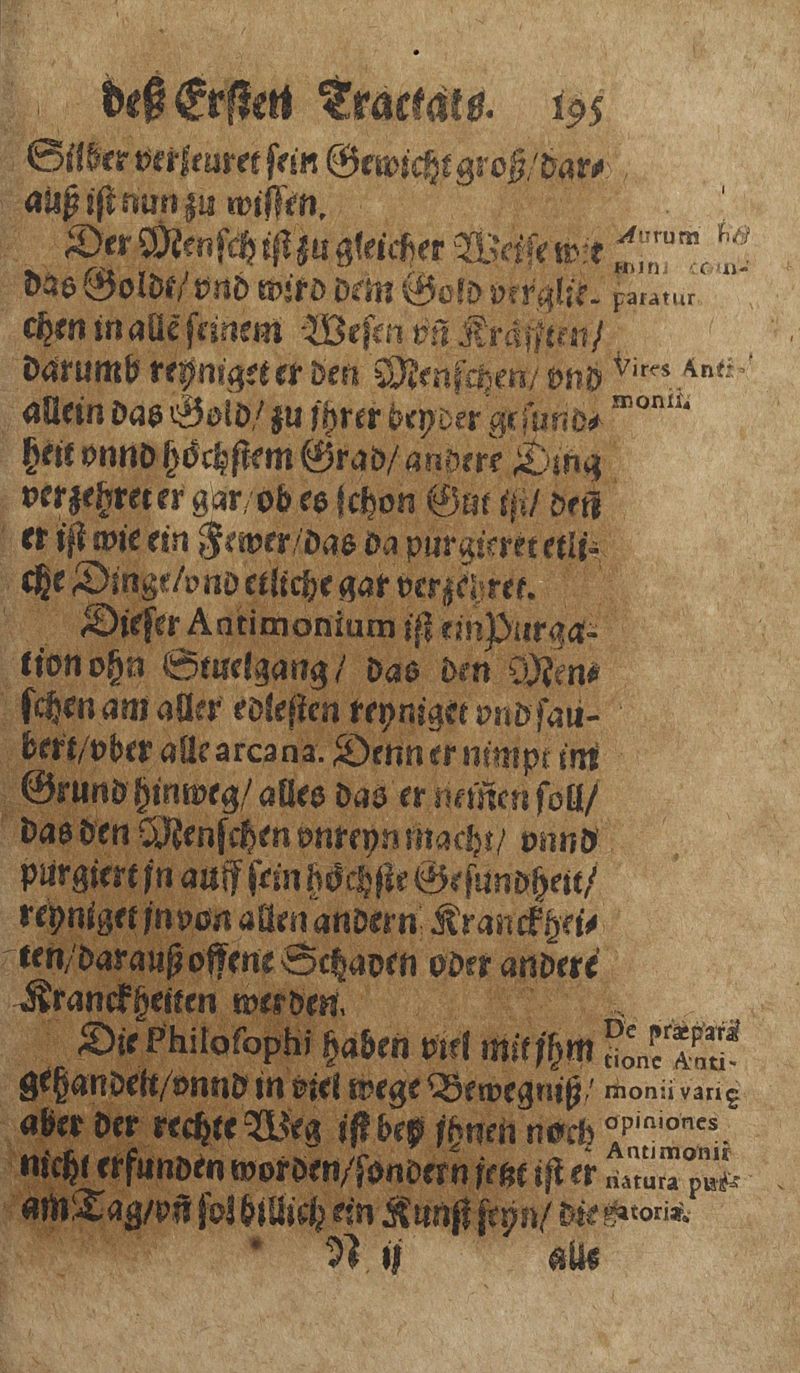 deß Ersten Tractats. 195
Silber verleuret sein Gewicht groß/ dar⸗
auß ist nun zu wissen.
Der Mensch ist zu gleicher Weise wie
das Goldt/ vnd wird dem Gold verglie-
chen in allē seinem Wesen vn̄ Kräfften/
darumb reyniget er den Menschen/ vnd
allein das Gold/ zu jhrer beyder gesund⸗
heit vnnd höchstem Grad/ andere Ding
verzehret er gar/ ob es schon Gut ist/ den̄
er ist wie ein Fewer/ das da purgieret etli-
che Dinge/ vnd etliche gar verzehret.
Dieser Antimonium ist ein Purga-
tion ohn Stuelgang/ das den Men⸗
schen am aller edlesten reyniget vnd sau-
bert/ vber alle arcana. Denn er nimpt im
Grund hinweg/ alles das er nem̄en soll/
das den Menschen vnreyn macht/ vnnd
purgiert jn auff sein höchste Gesundheit/
reyniget jn von allen andern Kranckhei⸗
ten/ darauß offene Schaden oder andere
Kranckheiten werden.
Die Philosophi haben viel mit jhm
gehandelt/ vnnd in viel wege Bewegniß/
aber der rechte Weg ist bey jhnen noch
nicht erfunden worden/ sondern jetzt ist er
am Tag/ vn̄ sol billich ein Kunst seyn/ die
N ij alle
Aurum ho
mini com-
paratur.
Vires Anti-
monii.
De præpara
tione Anti-
monii varię
opiniones
Antimonii
natura pur-
gatoria.